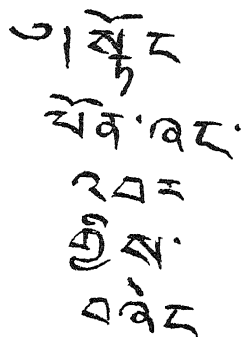 ༄། སྟོང
པོན་ཞང་
འབར
གྱིས་
བཞེང